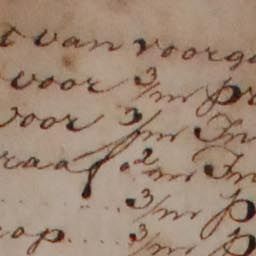 t van voorg
voor 3/m pr
voor 3/m In
raaf 2/m In
..... 3/m p
op .... 3/m p